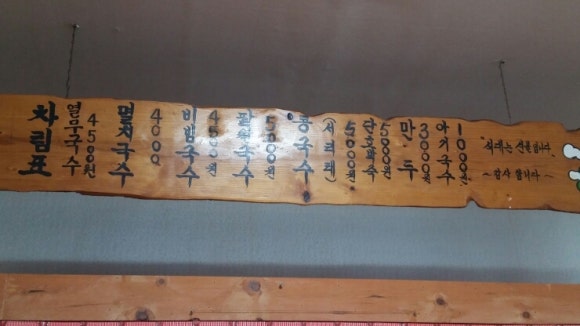 차림표
열무국수
4500원
멸치국수
4000
비빔국수
4500원
국수
콩국수
(서리태)
5000원
단호박국수
5000원
만두
3000원
아기국수
1000원
"식대는 선불입니다"
- 감사합니다 -